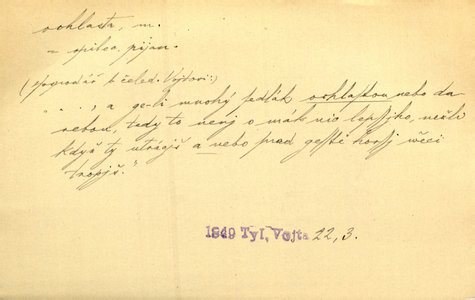 ochlasta, m.
= opilec, pijan.
(hospodář k čeled. Vojtovi:)
"..., a ge-li mnohý sedlák ochlastou nebo da-
rebou, tedy to nenj o mák nic lepssjho, nežli
když ty utrácjš a nebo snad gesstě horssj wěci
tropjš."
1849 Tyl, Vojta 22, 3.